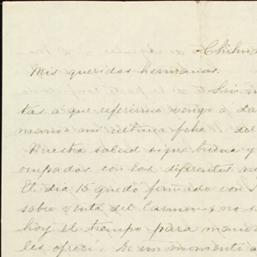 Chihu
Mis queridos hermanos.
Sin
tas a que referirme vengo a da
marios mi ultima fcha del
Nuestra salud sigue buena y
ocupados con los diferentes
El dia 15 quedó firmado con
sobre venta del Carmen y no
hoy el tiempo para man
les ofreci. De un momento a